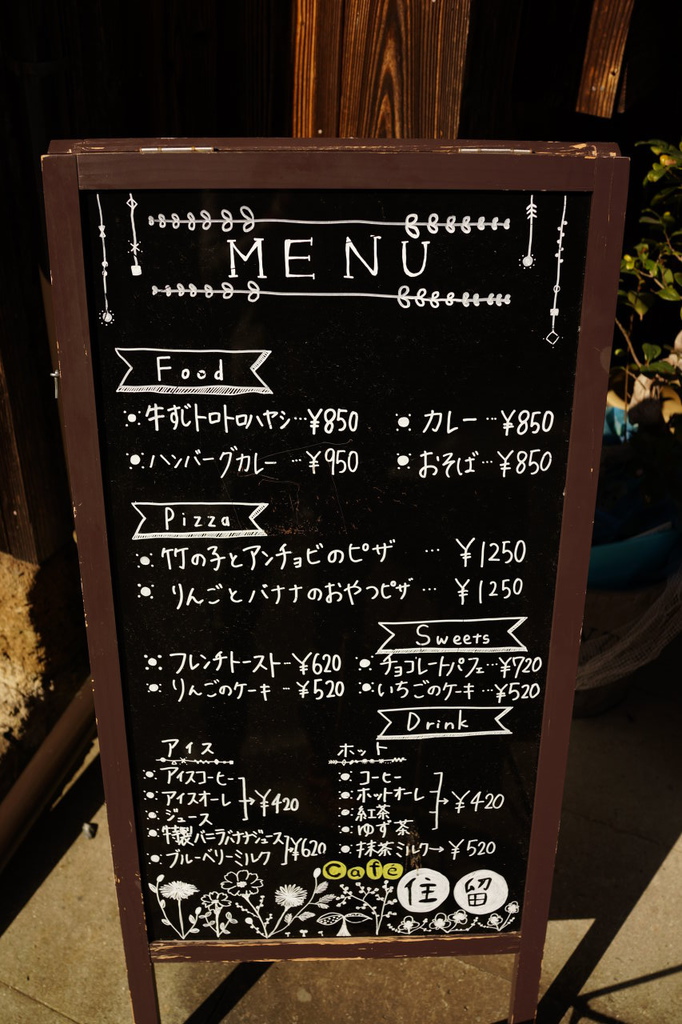 MENU
Food
牛すじトロトロハヤシ…¥850
カレー…¥850
ハンバーグカレー…¥950
おそば…¥850
Pizza
竹の子とアンチョビのピザ…¥1250
りんごとバナナのおやつピザ…¥1250
Sweets
フレンチトースト…¥620
チョコレートパフェ…¥720
りんごのケーキ…¥520
いちごのケーキ…¥520
Drink
アイス
アイスコーヒー
アイスオーレ→¥420
ジュース
特製バーラバナナジュース
ブルーベリーミルク→¥620
ホット
コーヒー
ホットオーレ
紅茶→¥420
ゆず茶
抹茶ミルク→¥520
Café
住留